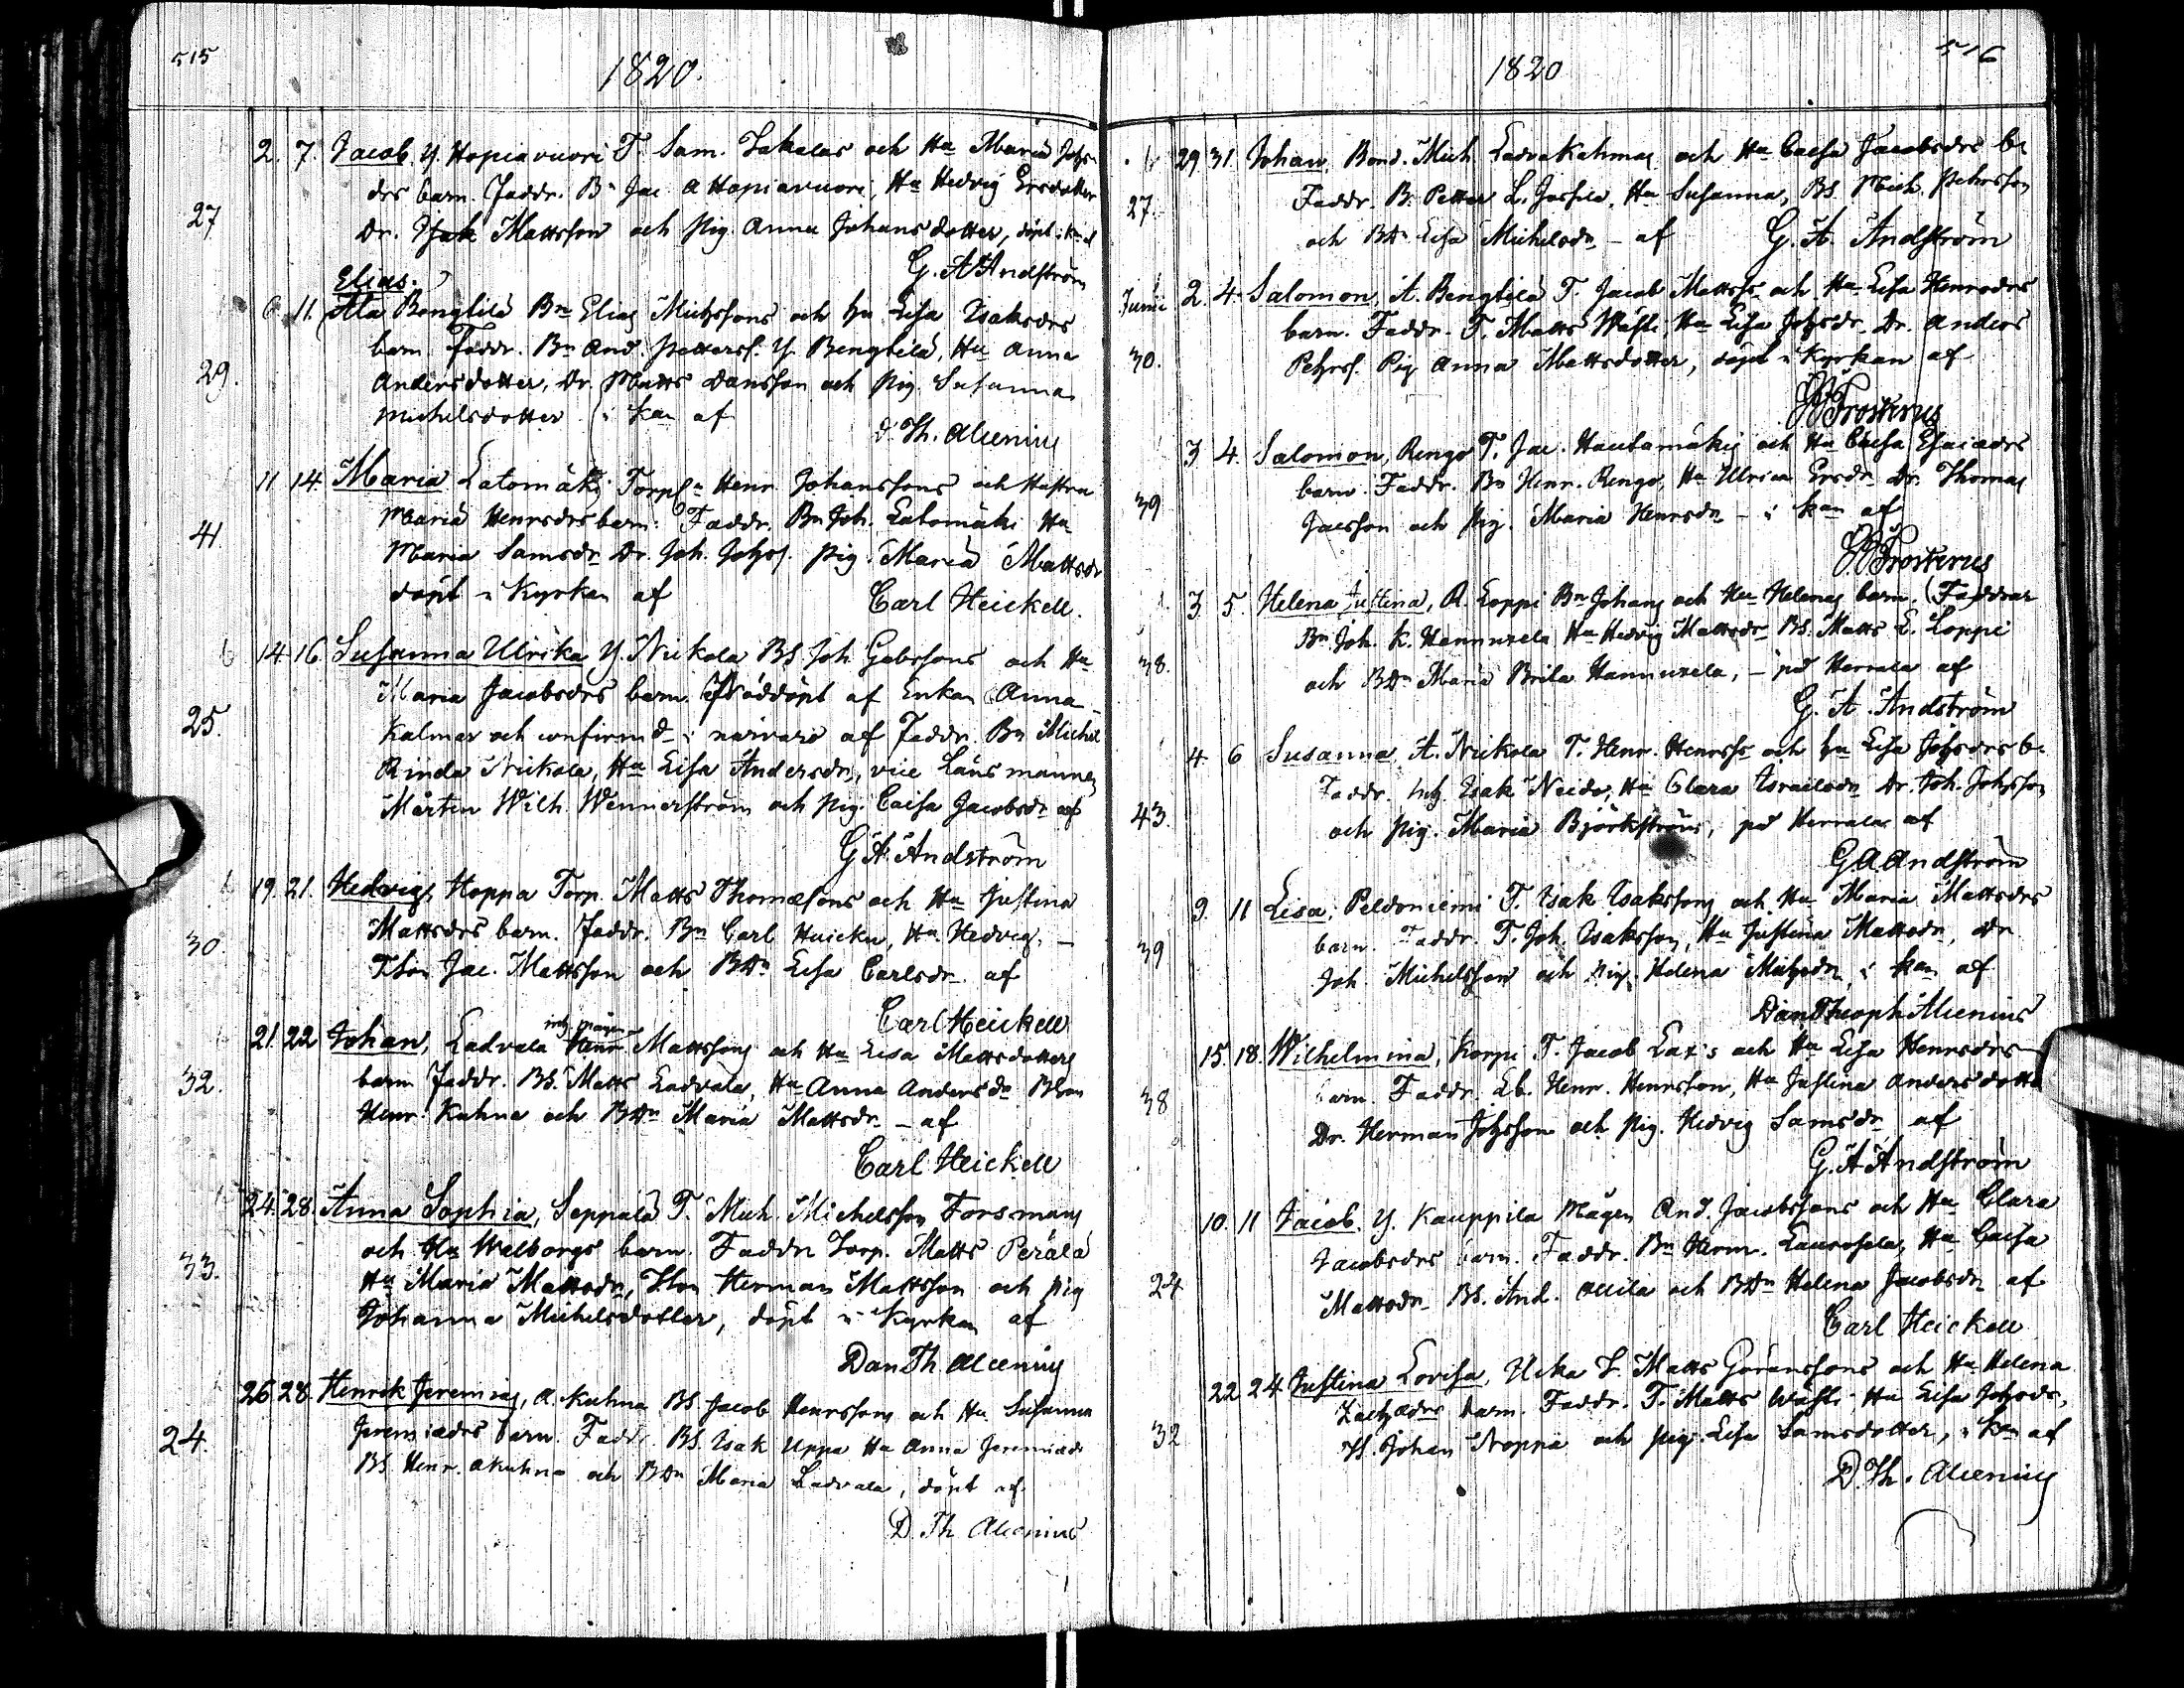 515
1820.
2. 7. Jacob Y. Hopiavuori T. Sam. Jakalas och Hu Maria Johs
drs barn. Faddr. Bn Jac. A Hopiavuori, Hu Hedvig Ersdotter
27
Dr. Isak Mattsson och Pig. Anna Johansdotter, döpt i kn af
G. A Andström
Elias.
6 11. Ala Bengtilä Bn Elias Michssons och hu Lisa Isaksdrs
barn Faddr. Bn And. Petterss. Y. Bengtilä, Hu Anna
29.
Andersdotter, Dr. Matts Dansson och Pig. Susanna
Michelsdotter i kan af
D. Th. Alcenius
11 14. Maria Latomäki Torp Henr Johanssons och Hustru
Maria Henrsdrs barn. Faddr. Bn Joh. Latomäki Hu
41.
Maria Samsdr Dr. Joh. Johss. Pig. Maria Mattsdr
döpt i Kyrkan af
Carl Heickell.
14 16. Susanna Ulrika Y. Nickola BS Joh Gabrssons och Hu
Maria Jacobsdrs barn. Nöddöpt af Enkan Anna
25.
Kalmar och confirmd i närvaro af Faddr. Bn Michel
Rinda Nickola, Hu Lisa Andersdr, vice Länsmannen
Mårten Wilh. Wennerström och Pig. Caisa Jacobsdr af
G A Andström
19. 21. Hedvig, Hoppa Torp. Matts Thomæsons och Hu Justina
Mattsdrs barn. Faddr. Bn Carl Huicku, Hu Hedvig,
30.
TSon Jac. Mattsson och BDr Lisa Carlsdr af
Carl Heickell
21. 22 Johan, Ladvala Henr Mattssons och Hu Lisa Mattsdotters
barn Faddr. BS. Matts Ladvala, Hu Anna Andersdr BSon
32.
Henr. Kuhna och BDn Maria Mattsdr af
Carl Heickell
24. 28. Anna Sophia, Seppälä T. Mich. Michelsson Forsmans
och Hu Walborgs barn. Faddr Torp. Matts Perälä
33.
Hu Maria Mattsdr, TSon Herman Mattsson och Pig
Johanna Michelsdotter, döpt i Kyrkan af
Dan Th. Alcenius
26. 28. Henrik Jeremias, A. Kuhna BS Jacob Henrssons och Hu Susanna
Jeremiædrs barn. Faddr. BS. Isak Uppa Hu Anna Jeremiædr
24.
BS. Henr. A Kuhna och BDn Maria Ladvala, döpt af
D. Th Alcenius
516
1820
29 31. Johan, Bond. Mich Ladvakahmas och Hu Caisa Jacobsdrs b:
27.
Faddr. B. Petter L. Jasfila, Hu Susanna, BS. Mich. Pehrsson
och BDr Lisa Michelsdr af G. A. Andström
Junii 2. 4. Salomon, A. Bengtilä T. Jacob Mattsss och Hu Lisa Henrsdrs
barn. Faddr. T. Matts Wästi Hu Lisa Johsdr. Dr. Anders
30.
Pehrss. Pig Anna Mattsdotter, döpt i Kyrkan af
Frosterus
3 4. Salomon, Rengo T. Jac. Hautamäkis och Hu Caisa Esaiædrs
barn. Faddr. Bn Henr. Rengo, Hu Ulrica Ersdr Dr. Thomas
39
Jacsson och Pig. Maria Henrsdr i kan af
Frosterus
3 5. Helena Justina, A. Loppi Bn Johans och Hu Helenas barn. Faddrar
Bn Joh. K. Hannuxela Hu Hedvig Mattsdr BS. Matts L. Loppi
38.
och BDr Maria Brita Hannuxela, på Herrala af
G. A. Andström
4. 6 Susanna A. Nickola T. Henr. Henrsss och hu Lisa Johsdrs b:
Faddr. Isak Neido, Hu Clara Israelsdr Dr. Joh. Johsson
43.
och Pig. Maria Björkström, på Herrala af
G A Andström
9. 11 Lisa, Peldoniemi T. Isak Isakssons och Hu Maria Mattsdrs
barn. Faddr. T. Joh. Isaksson, Hu Justina Mattsdr, Dr.
39
Joh. Michelsson och Pig. Helena Michsdr i kan af
Dan Theoph Alcenius
15. 18. Wilhelmina, Korpi T. Jacob Lax's och Hu Lisa Henrsdrs
barn. Faddr. Lb. Henr. Henrsson, Hu Justina Andersdotter
38
Dr. Herman Johsson och Pig. Hedvig Samsdr af
G. A Andström
10. 11 Jacob. Y. Kauppila Mågen And. Jacobssons och Hu Clara
Jacobsdrs barn. Faddr. Bn Herm. Laurosela, Hu Caisa
24
Mattsdr BS. And. Ollila och BDn Helena Jacobsdr af
Carl Heickell
22 24. Justina Lovisa, Ucka T. Matts Göranssons och Hu Helena
Zachædrs barn. Faddr. T. Matts Wästi Hu Lisa Johsdr,
32
Johan Noppa och Pig. Lisa Samsdotter, i kn af
D. Th. Alcenius